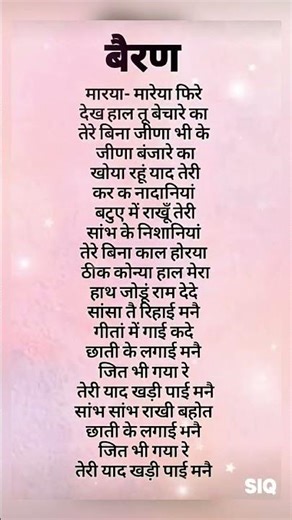 बैरण
मारया- मारेया फिरे
देख हाल तू बेचारे का
तेरे बिना जीणा भी के
जीणा बंजारे का
खोया रहूं याद तेरी
कर क नादानियां
बटुए में राखूँ तेरी
सांभ के निशानियां
तेरे बिना काल होरया
ठीक कोन्या हाल मेरा
हाथ जोडूं राम देदे
सांसा तै रिहाई मनै
गीतां में गाई कदे
छाती के लगाई मनै
जित भी गया रे
तेरी याद खड़ी पाई मनै
सांभ सांभ राखी बहोत
छाती के लगाई मनै
जित भी गया रे
तेरी याद खड़ी पाई मनै
SIQ